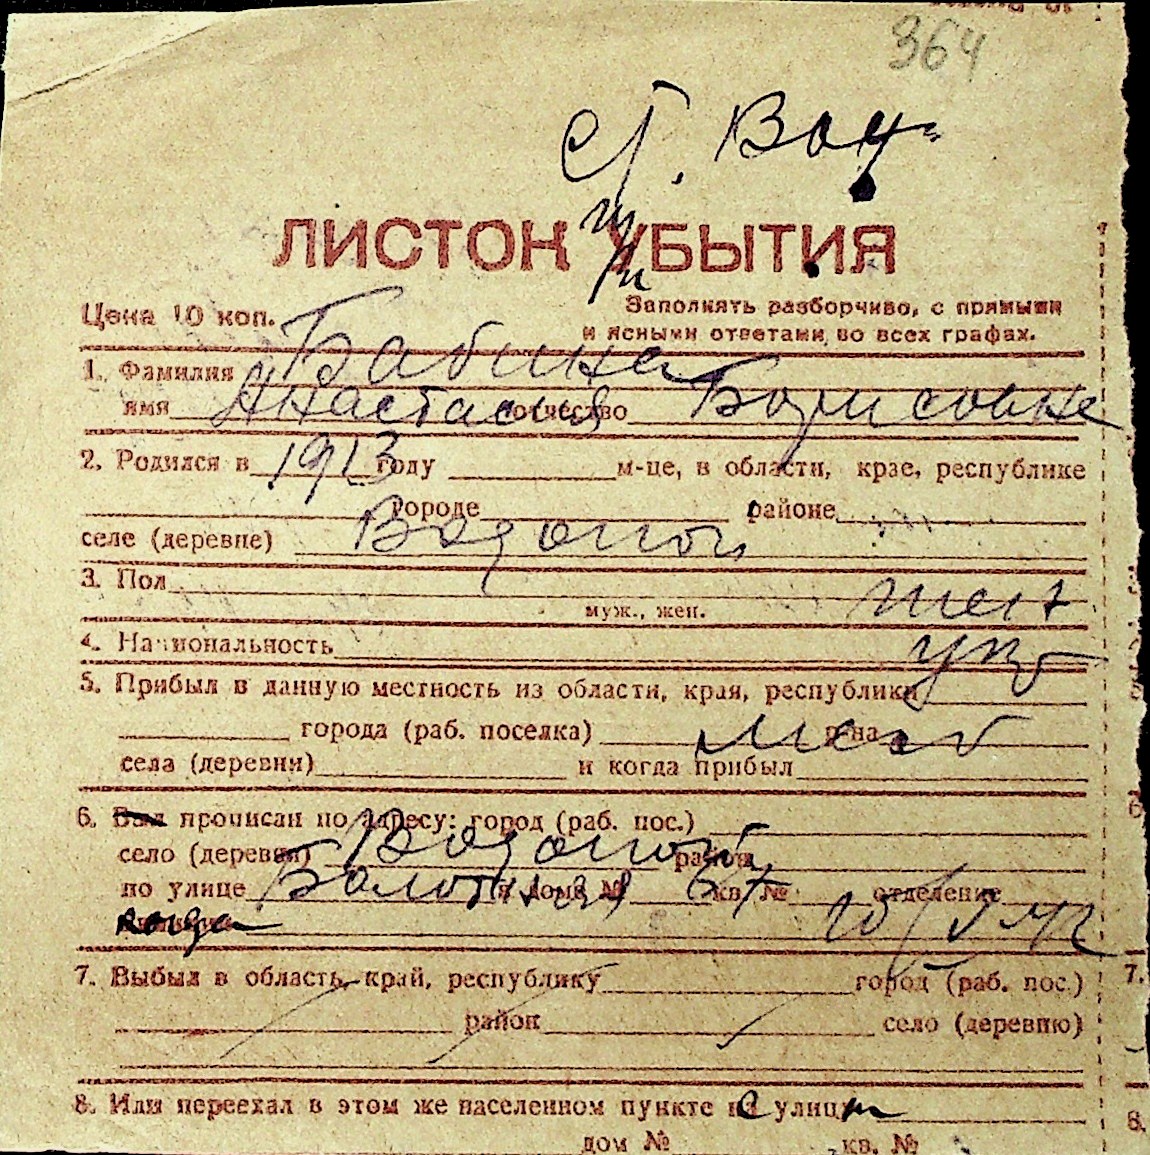 364
ст. Вод
ЛИСТОК УБЫТИЯ
Цена 10 коп.
Заполнять разборчиво, с прямыми
и ясными ответами во всех графах.
1. Фамилия Бабина
имя Анастасия отчество Борисовна
2. Родился в 1913 году м-це, в области, крае, республике
городе районе
селе (деревне) Водопой
3. Пол жен
муж., жен.
4. Национальность укр
5. Прибыл в данную местность из области, края, республики
города (раб. поселка) р-на
села (деревни) и когда прибыл
6. Был прописан по адресу: город (раб. пос.)
село (деревня) Водопой район
по улице Болотная дом № 67 кв. № отделение
милиции когда
7. Выбыл в область, край, республику город (раб. пос.)
район село (деревню)
8. Или переехал в этом же населенном пункте на улицу
дом № кв. №
7.
8.